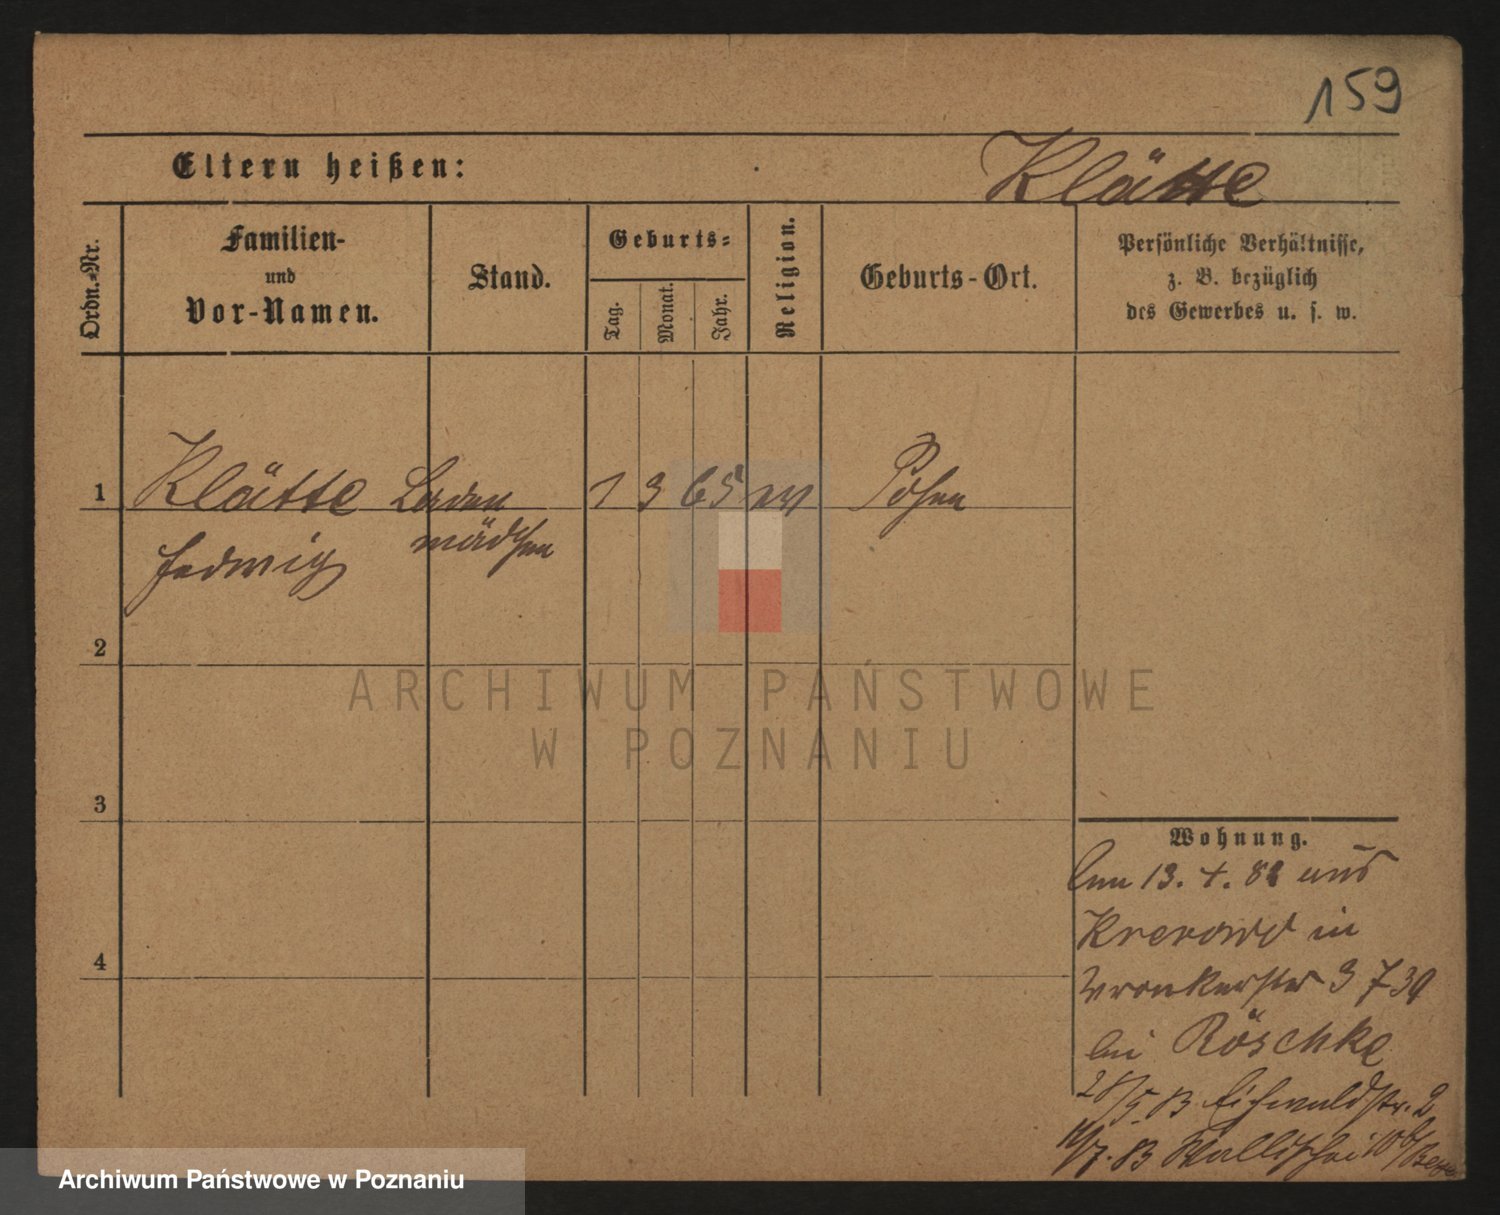 159
Eltern heißen:
Klätte
Ordn.-Nr.
Familien-
und
Vor-Namen.
Stand.
Geburts=
Tag.
Monat.
Jahr.
Religion.
Geburts-Ort.
Persönliche Verhältnisse,
z. B. bezüglich
des Gewerbes u. s. w.
1
Klätte
Hedwig
Laden
mädchen
1
3
65
ev
Posen
2
3
4
Wohnung.
13. 4. 82 aus
in
Wronkerstr 3
bei Röschke
Eichwaldstr. 2
7. 83 Wallischei
ARCHIWUM PAŃSTWOWE
W POZNANIU
Archiwum Państwowe w Poznaniu